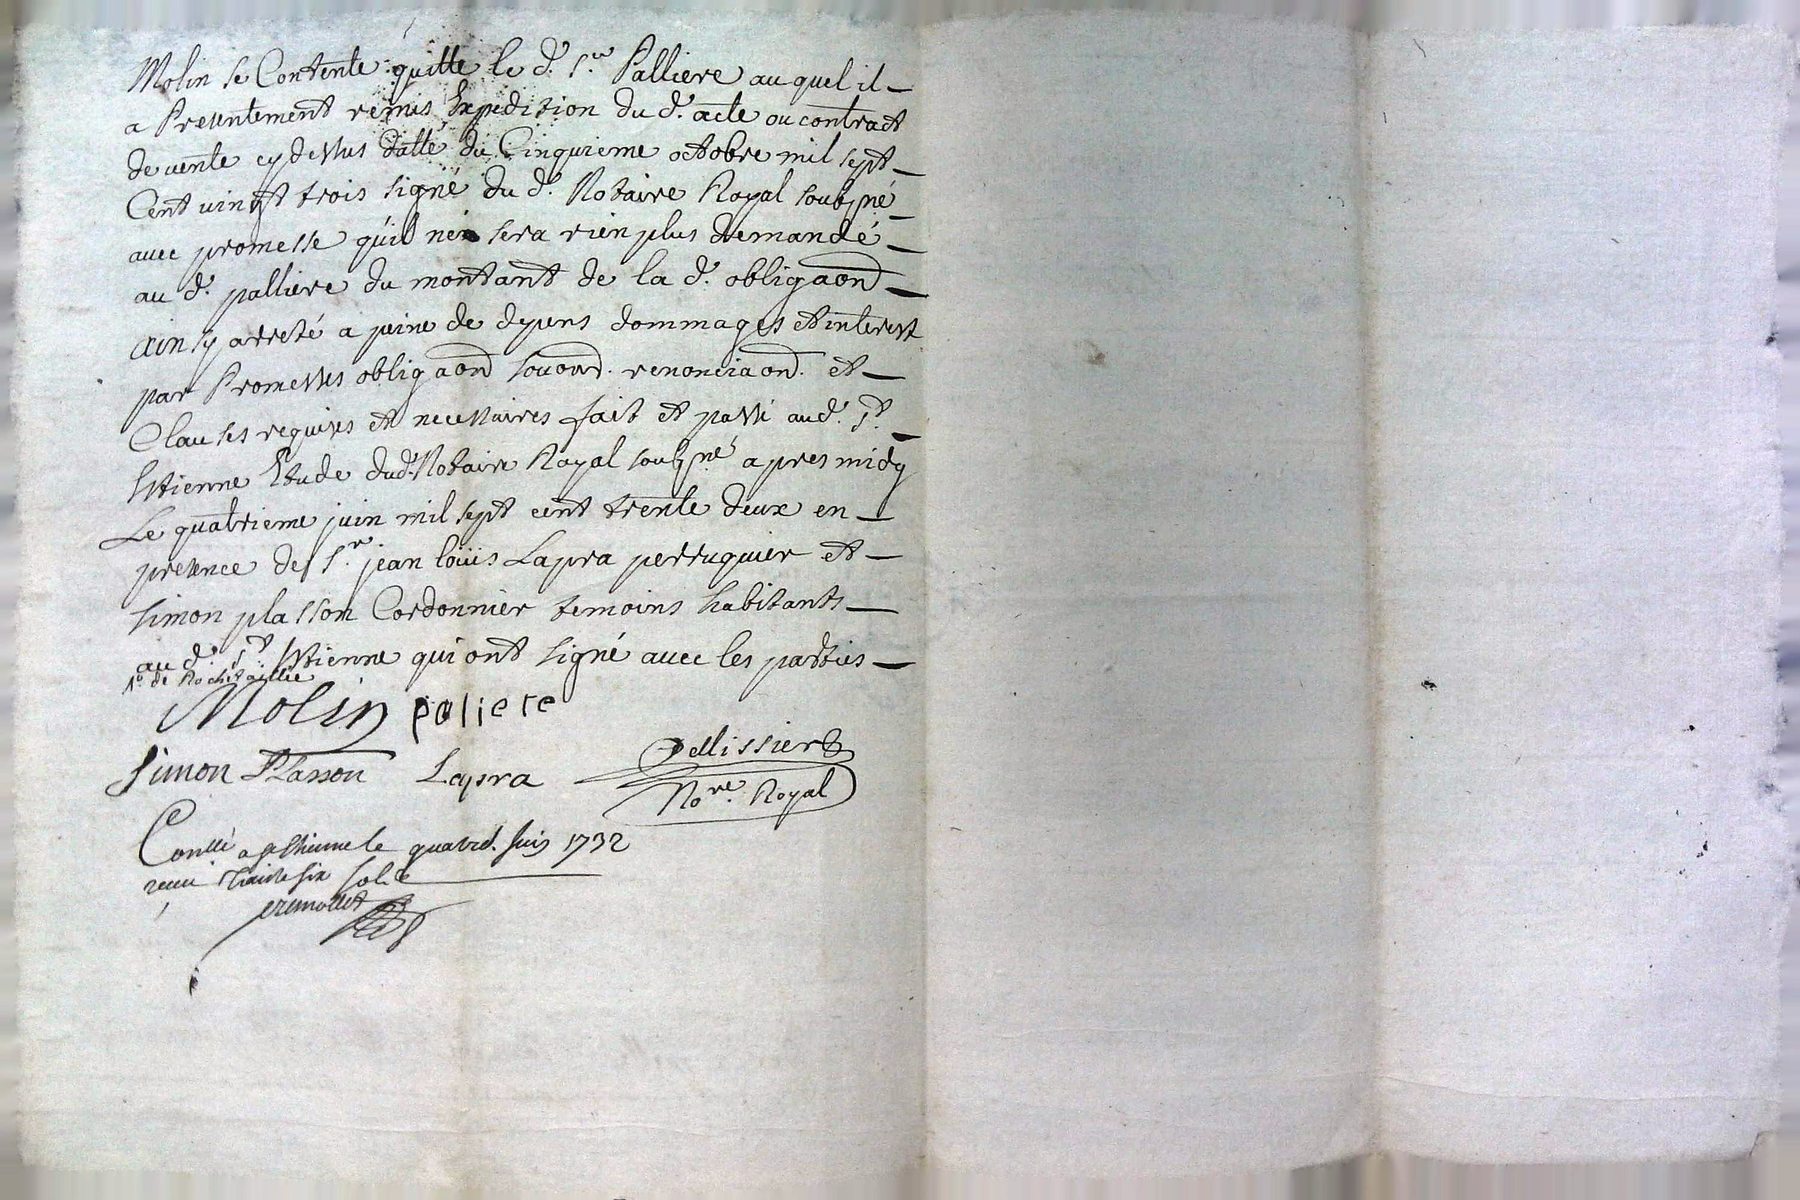 Molin se Contente quitte le d. s.r Palliere au quel il
a Presentement remis Expedition du d. acte ou contract
de vente cy dessus datté du Cinquieme octobre mil sept
Cent vingt trois signé du d. Notaire Royal soubs.né
avec promesse qu'il n'en sera rien plus demandé
au d. palliere du montant de la d. obligaon
ainsy arreté a peine de depens dommages et interest
par Promesses obligaon renonciaon. et
Clauses requises et necessaires fait et passé aud. s.t
Estienne Etude dud. Notaire Royal soubs.né apres midy
Le quatrieme juin mil sept cent trente deux en
presence de s.r jean loüis Lapra perruquier et
simon plasson Cordonnier temoins habitants
au d. s.t Estienne qui ont signé avec les parties
de Rochetaillie
Molin paliere
Simon Plasson Lapra Pellissier
No.re Royal
Con.llé a st Etienne le quatre. Juin 1732
receu Trente six sols